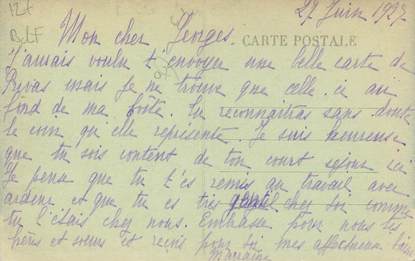 12f
BLF
27 Juin 1927.
Mon cher Georges.
CARTE POSTALE
J'aurais voulu t'envoyer une belle carte de
Privas mais je ne trouve que celle-ci au
fond de ma boîte. Tu reconnaîtras sans doute
le coin qu'elle représente. Je suis heureuse
que tu sois content de ton court séjour ici
Je pense que tu t'es remis au travail avec
ardeur et que tu es très gentil chez toi comme
tu l'étais chez nous. Embrasse pour nous tes
père et soeurs et reçois pour toi mes affectueux baisers
Marraine